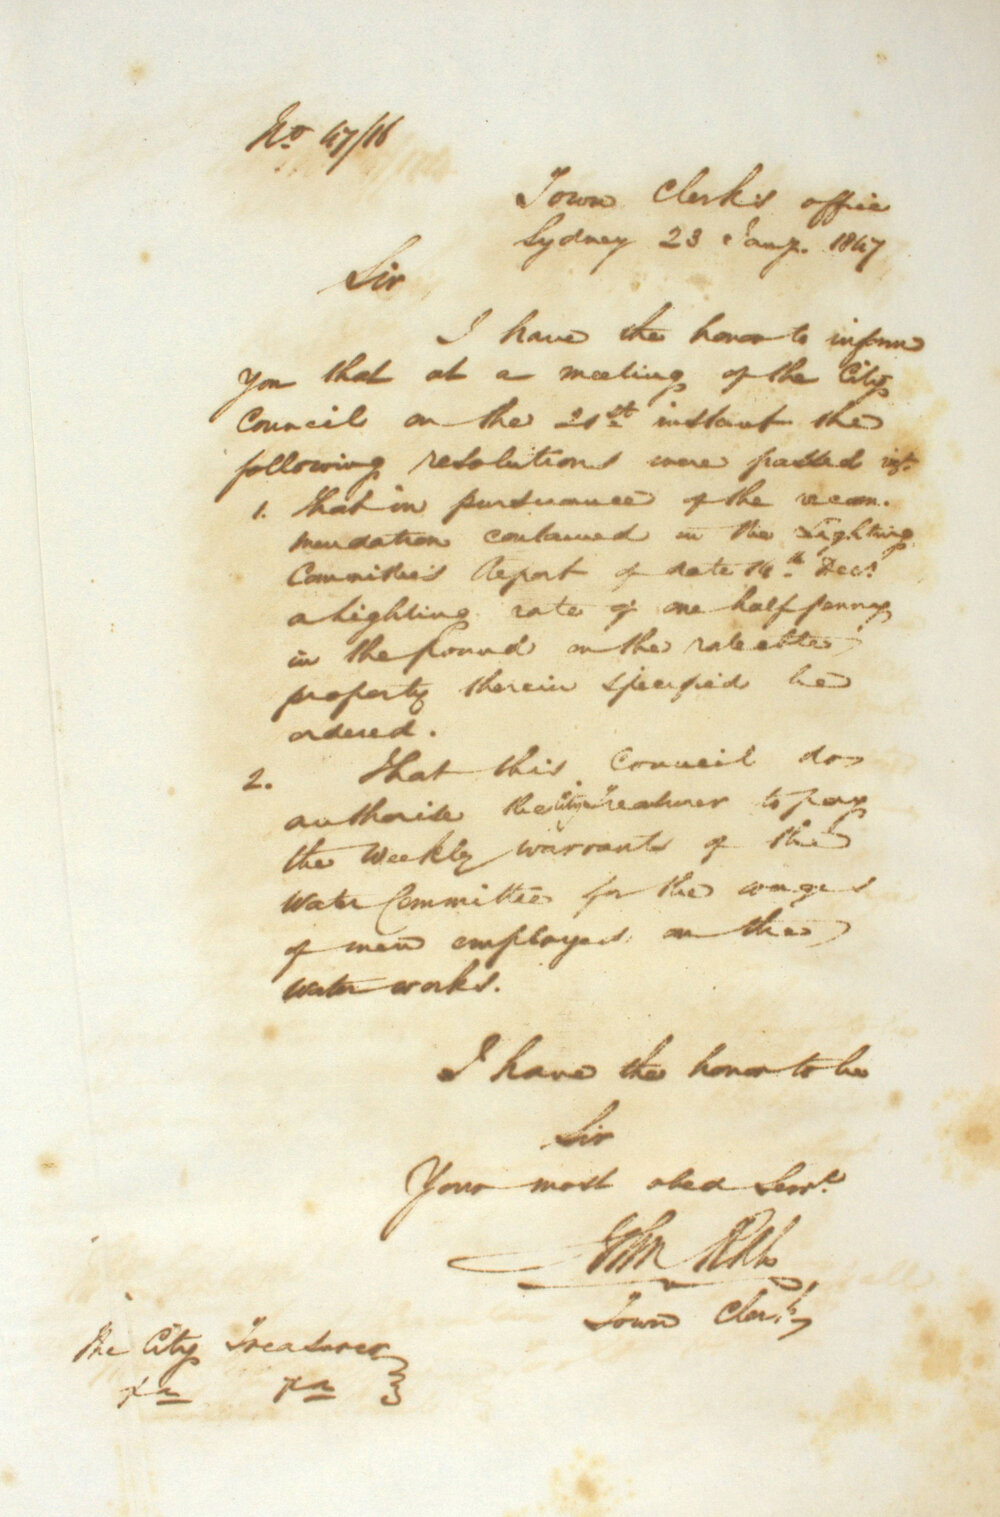 No. 47/16
Town Clerk's office
Sydney 23 Jany. 1847
Sir
I have the honor to inform
you that at a meeting of the City
Council on the 21st instant the
following resolutions were passed vizt.
1. That in pursuance of the recom-
mendation contained in the Lighting
Committee's Report of date 14th Decr.
a lighting rate of one half penny
in the Pound on the rateable
property therein specified be
ordered.
2. That this Council do
authorise the City Treasurer to pay
the Weekly warrants of the
Water Committee for the wages
of men employed on the
Water works.
I have the honor to be
Sir
Your most obed Servt.
John Rae
Town Clerk
The City Treasurer